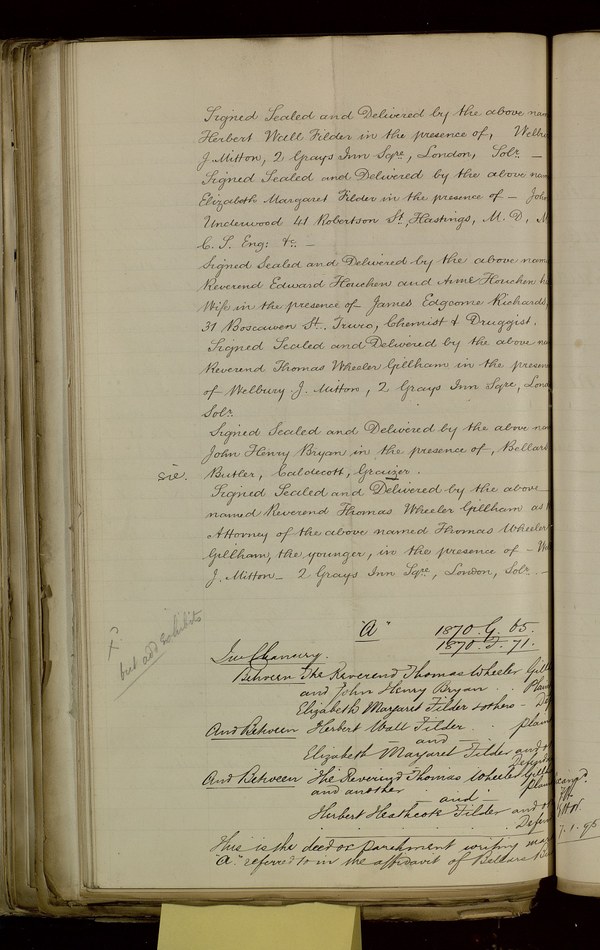 Signed Sealed and Delivered by the above nam
Herbert Wall Filder in the presence of, Welbu
J. Mitton, 2 Grays Inn Sqre, London, Solr —
Signed Sealed and Delivered by the above nam
Elizabeth Margaret Filder in the presence of – John
Underwood 41 Robertson St. Hastings, M. D, M
C. S. Eng: &c. –
Signed Sealed and Delivered by the above nam
Reverend Edward Houchen and Anne Houchen h
Wife in the presence of James Edgcome Richards,
31 Boscawen St. Truro, Chemist & Druggist.
Signed Sealed and Delivered by the above na
Reverend Thomas Wheeler Gillham in the presen
of Welbury J. Mitton, 2 Grays Inn Sqre, Lond
Solr
Signed Sealed and Delivered by the above na
John Henry Bryan in the presence of, Bellar
sic. Butler, Caldecott, Graizer.
Signed Sealed and Delivered by the above
named Reverend Thomas Wheeler Gillham as t
Attorney of the above named Thomas Wheeler
Gillham, the younger, in the presence of – We
J. Mitton – 2 Grays Inn Sqre, London, Solr. –
"A" 1870. G. 65.
1870. F. 71.
but add exhibits
In Chancery.
Between The Reverend Thomas Wheeler Gill
and John Henry Bryan . . Plain
Elizabeth Margaret Filder & others – De
And Between Herbert Wall Filder . . plain
and
Elizabeth Margaret Filder and o
Defend
And Between The Reverend Thomas Wheeler Gillh
and another . . Plain
and
Herbert Heathcote Filder and o
Defen
This is the deed or parchment writing mar
"A" referred to in the affidavit of Bellars Bu
7.1.95